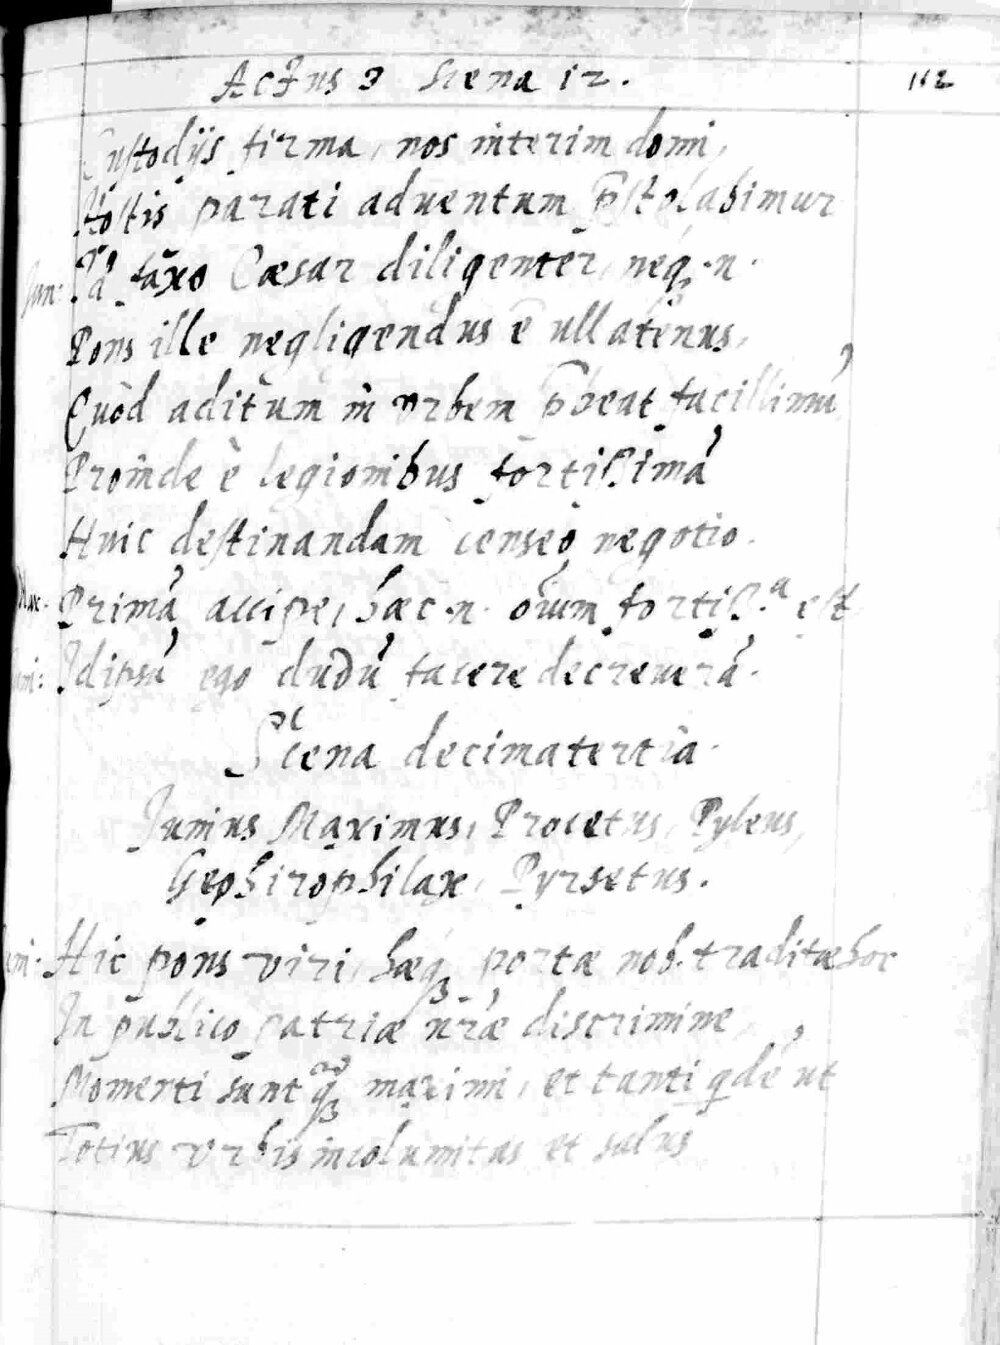 Actus 3 Scena 12. 112
Custodijs firma, nos interim domi,
Hostis parati aduentum p̄stolabimur
Jun: faxo Cæsar diligenter, neq₃ .n.
Pons ille negligendus ē ullatenus,
Quòd aditum in vrbem p̄beat facillimũ,
Proinde è legionibus fortissimã
Huic destinandam censeo negotio.
Max: Primã accipe, hæc .n. oīum fortiss.ᵃ est
Juni: Idipsũ ego dudũ facere decreuerã.
Scena decimatertia.
Junius Maximus, Procetus, Pyleus,
Gephirophilax, Pyrsetus.
Juni: Hic pons viri, hæq₃ portæ nob. traditæ hoc
In publico patriæ nr̃æ discrimine
Momenti sunt maximi, et tanti qdē ut
Totius vrbis incolumitas et salus